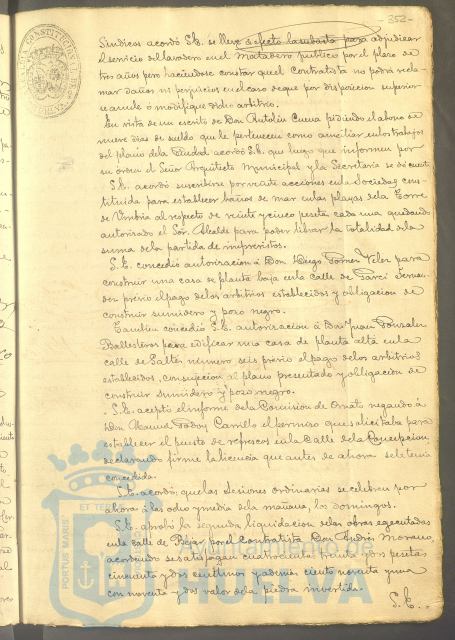 352
Síndicos acordó S.E. se lleve á efecto la subasta para adjudicar
el servicio del lavadero en el Matadero público por el plazo de
tres años pero haciendose constar que el Contratista no podrá recla-
mar daños ni perjuicios en el caso de que por disposicion superior
se anule ó modifique dicho arbitrio.
En vista de un escrito de Don Antolin Cueva pidiendo el abono de
nueve dias de sueldo que le pertenecen como auxiliar en los trabajos
del plano de la Ciudad acordó S.E. que luego que informen por
su órden el Señor Arquitecto Municipal y la Secretaria se dé cuenta
S.E. acordó suscribirse por veinte acciones en la Sociedad cons-
tituida para establecer baños de mar en las playas de la Torre
de Umbria al respecto de veinte y cinco pesetas cada una quedando
autorizado el Sor. Alcalde para poder librar la totalidad de la
suma de la partida de imprevistos.
S.E. concedió autorizacion á Don Diego Torner Velez para
construir una casa de planta baja en la calle de Garci Fernan-
dez previo el pago de los arbitrios establecidos y obligacion de
construir sumidero y pozo negro.
Tambien concedió S.E. autorizacion á Don Juan Gonzalez
Ballesteros para edificar una casa de planta alta en la
calle de Galtés número seis previo el pago de los arbitrios
establecidos, con sujecion al plano presentado y obligacion de
construir sumidero y pozo negro.
S.E. aceptó el informe de la Comision de Ornato negando á
Don Manuel Godoy Carrillo el permiso que solicitaba para
establecer el puesto de refrescos en la Calle de la Concepcion,
declarando firme la licencia que antes de ahora se le tenia
concedida.
S.E. acordó que las Sesiones ordinarias se celebren por
ahora á las ocho y media de la mañana, los domingos.
S.E. aprobó la segunda liquidacion de las obras ejecutadas
en la calle de Bejar por el Contratista Don Andrés Morano,
acordando se satisfagan cuatrocientas treinta y dos pesetas
cincuenta y dos centimos y ademas ciento noventa y una
con noventa y dos valor de la piedra invertida.
S.E.
PORTUS MARIS ET TERRAE
HUELVA